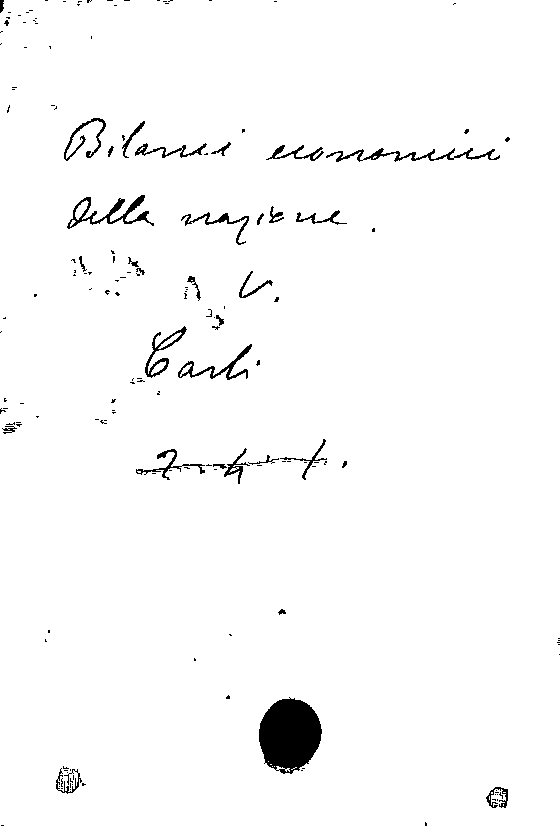 Bilanci economici
della nazione.
V.
Carli
2.4.1.